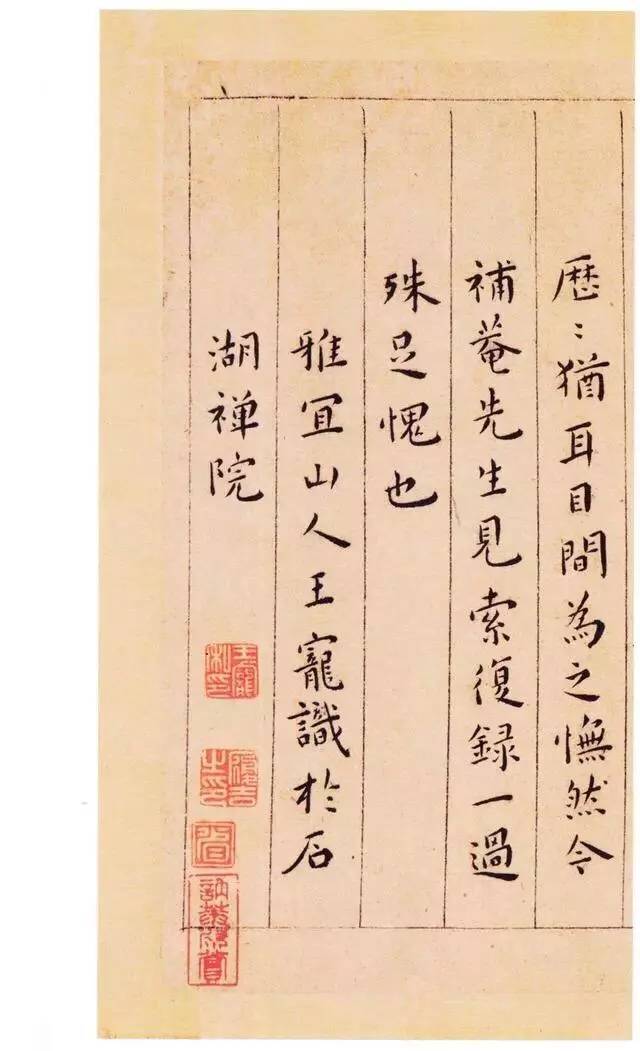 歷〻猶耳目間為之憮然今
補菴先生見索復録一過
殊足愧也
雅宜山人王寵識於石
湖禅院
王寵私印